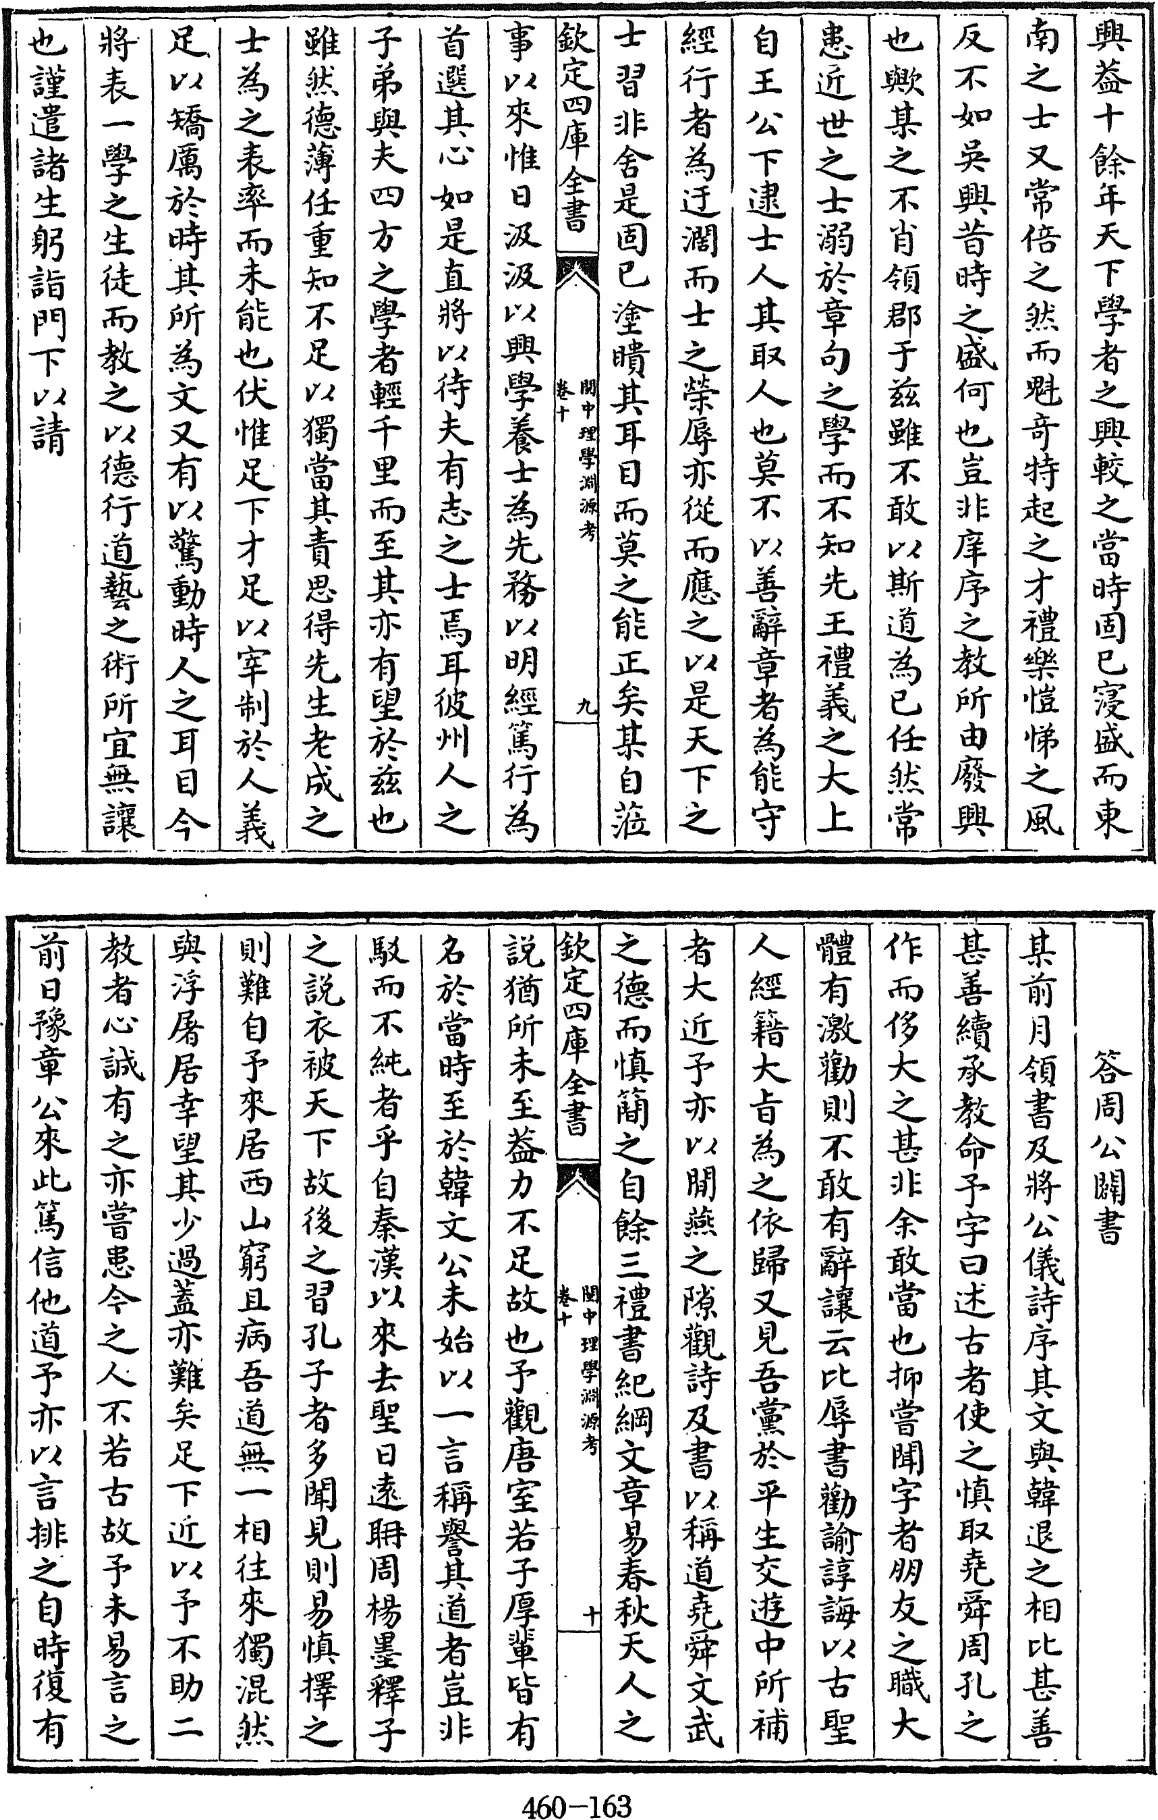 興葢十餘年天下學者之興較之當時固已寖盛而東
南之士又常倍之然而魁奇特起之才禮樂愷悌之風
反不如吳興昔時之盛何也豈非庠序之教所由廢興
也歟某之不肖領郡于兹雖不敢以斯道為已任然常
患近世之士溺於章句之學而不知先王禮義之大上
自王公下逮士人其取人也莫不以善辭章者為能守
經行者為迂濶而士之榮辱亦從而應之以是天下之
士習非舍是固已塗瞶其耳目而莫之能正矣某自蒞
欽定四庫全書
閩中理學淵源考
卷十
九
事以來惟日汲汲以興學養士為先務以明經篤行為
首選其心如是直將以待夫有志之士焉耳彼州人之
子弟與夫四方之學者輕千里而至其亦有望於兹也
雖然德薄任重知不足以獨當其責思得先生老成之
士為之表率而未能也伏惟足下才足以宰制於人義
足以矯厲於時其所為文又有以驚動時人之耳目今
將表一學之生徒而教之以德行道藝之術所宜無讓
也謹遣諸生躬詣門下以請
答周公闢書
某前月領書及將公儀詩序其文與韓退之相比甚善
甚善續承教命予字曰述古者使之慎取堯舜周孔之
作而侈大之甚非余敢當也抑嘗聞字者朋友之職大
體有激勸則不敢有辭讓云比辱書勸諭諄誨以古聖
人經籍大旨為之依歸又見吾黨於平生交遊中所補
者大近予亦以閒燕之隙觀詩及書以稱道堯舜文武
之德而慎簡之自餘三禮書紀綱文章易春秋天人之
欽定四庫全書
閩中理學淵源考
卷十
十
說猶所未至葢力不足故也予觀唐室若子厚輩皆有
名於當時至於韓文公未始以一言稱譽其道者豈非
駁而不純者乎自秦漢以來去聖日遠聃周楊墨釋子
之說衣被天下故後之習孔子者多聞見則易慎擇之
則難自予來居西山窮且病吾道無一相往來獨混然
與浮屠居幸望其少過蓋亦難矣足下近以予不助二
教者心誠有之亦嘗患今之人不若古故予未易言之
前日豫章公來此篤信他道予亦以言排之自時復有
460-163